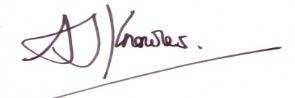 A J Knowles.